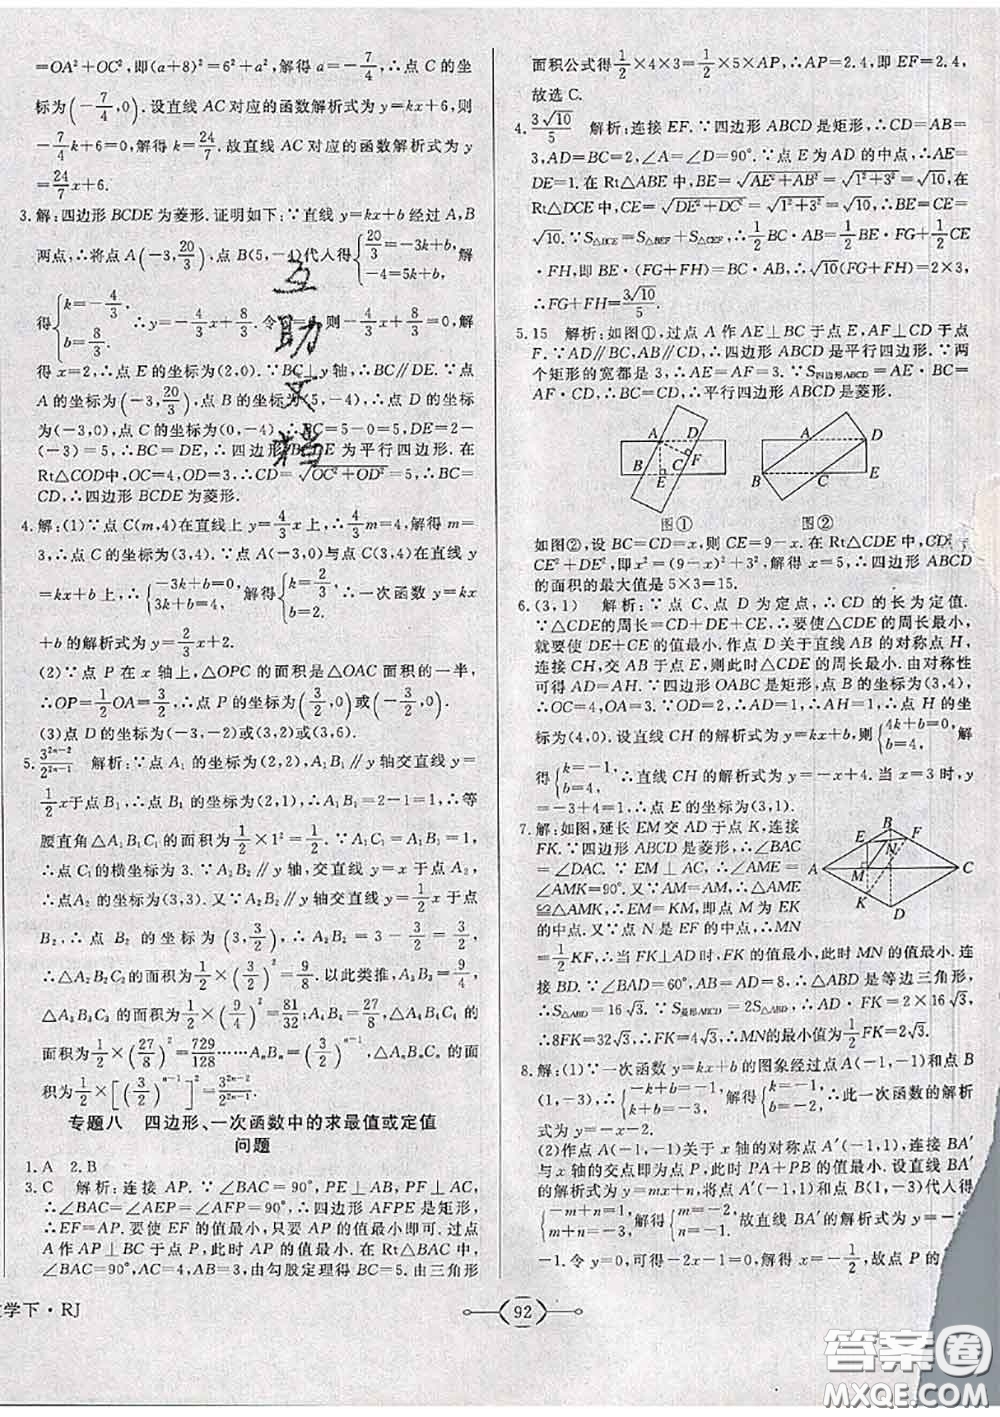 =OA²+OC²,即(a+8)²=6²+a²,解得a=-7/4,∴点C的坐
标为(-7/4,0).设直线AC对应的函数解析式为y=kx+6,则
-7/4k+6=0,解得k=24/7.故直线AC对应的函数解析式为y
=24/7x+6.
3.解:四边形BCDE为菱形.证明如下:∵直线y=kx+b经过A,B
两点,∴将点A(-3,20/3),点B(5,-4)代入得{20/3=-3k+b, -4=5k+b,解
得{k=-4/3, b=8/3. ∴y=-4/3x+8/3.令y=0,则-4/3x+8/3=0,解
得x=2,∴点E的坐标为(2,0).∵BC⊥y轴,∴BC∥DE.∵点
A的坐标为(-3,20/3),点B的坐标为(5,-4),∴点D的坐标为
(-3,0),点C的坐标为(0,-4).∴BC=5-0=5,DE=2-
(-3)=5,∴BC=DE,∴四边形BCDE为平行四边形.在
Rt△COD中,OC=4,OD=3,∴CD=√(OC²+OD²)=5,∴BC
=CD,∴四边形BCDE为菱形.
4.解:(1)∵点C(m,4)在直线上y=4/3x上,∴4/3m=4,解得m=
3,∴点C的坐标为(3,4).∵点A(-3,0)与点C(3,4)在直线y
=kx+b上,∴{-3k+b=0, 3k+b=4, 解得{k=2/3, b=2. ∴一次函数y=kx
+b的解析式为y=2/3x+2.
(2)∵点P在x轴上,△OPC的面积是△OAC面积的一半,
∴OP=1/2OA=3/2,∴点P的坐标为(3/2,0)或(-3/2,0).
(3)点D的坐标为(-3,-2)或(3,2)或(3,6).
5.3²ⁿ⁻²/2²ⁿ⁻¹ 解析:∵点A₁的坐标为(2,2),A₁B₁∥y轴交直线y=
1/2x于点B₁,∴点B₁的坐标为(2,1),∴A₁B₁=2-1=1,∴等
腰直角△A₁B₁C₁的面积为1/2×1²=1/2.∵A₁C₁=A₁B₁=1,∴
点C₁的横坐标为3.又∵A₂B₂∥y轴,交直线y=x于点A₂,
∴点A₂的坐标为(3,3).又∵A₂B₂∥y轴,交直线y=1/2x于点
B₂,∴点B₂的坐标为(3,3/2),∴A₂B₂=3-3/2=3/2,
∴△A₂B₂C₂的面积为1/2×(3/2)²=9/8.以此类推,A₃B₃=9/4,
△A₃B₃C₃的面积为1/2×(9/4)²=81/32;A₄B₄=27/8,△A₄B₄C₄的
面积为1/2×(27/8)²=729/128……AₙBₙ=(3/2)ⁿ⁻¹,△AₙBₙCₙ的面
积为1/2×[(3/2)ⁿ⁻¹]²=3²ⁿ⁻²/2²ⁿ⁻¹.
专题八 四边形、一次函数中的求最值或定值
问题
1.A 2.B
3.C 解析:连接AP.∵∠BAC=90°,PE⊥AB,PF⊥AC,
∴∠BAC=∠AEP=∠AFP=90°,∴四边形AFPE是矩形,
∴EF=AP.要使EF的值最小,只要AP的值最小即可.过点
A作AP⊥BC于点P,此时AP的值最小.在Rt△BAC中,
∠BAC=90°,AC=4,AB=3,由勾股定理得BC=5.由三角形
面积公式得1/2×4×3=1/2×5×AP,∴AP=2.4,即EF=2.4,
故选C.
4.3√10/5 解析:连接EF.∵四边形ABCD是矩形,∴CD=AB=
3,AD=BC=2,∠A=∠D=90°.∵点E为AD的中点,∴AE=
DE=1.在Rt△ABE中,BE=√(AE²+AB²)=√(1²+3²)=√10,在
Rt△DCE中,CE=√(DE²+DC²)=√(1²+3²)=√10,∴CE=BE=
√10.∵S△BCE=S△BEF+S△CEF,∴1/2BC·AB=1/2BE·FG+1/2CE
·FH,即BE·(FG+FH)=BC·AB,∴√10(FG+FH)=2×3,
∴FG+FH=3√10/5.
5.15 解析:如图①,过点A作AE⊥BC于点E,AF⊥CD于点
F.∵AD∥BC,AB∥CD,∴四边形ABCD是平行四边形.∵两
个矩形的宽都是3,∴AE=AF=3.∵S四边形ABCD=AE·BC=
AF·CD,∴BC=CD,∴平行四边形ABCD是菱形.
A D B C F E
A D B C E
图① 图②
如图②,设BC=CD=x,则CE=9-x.在Rt△CDE中,CD²=
CE²+DE²,即x²=(9-x)²+3²,解得x=5,∴四边形ABCD
的面积的最大值是5×3=15.
6.(3,1) 解析:∵点C、点D为定点,∴CD的长为定值.
∵△CDE的周长=CD+DE+CE,∴要使△CDE的周长最小,
就要使DE+CE的值最小.作点D关于直线AB的对称点H,
连接CH,交AB于点E,则此时△CDE的周长最小.由对称性
可得AD=AH.∵四边形OABC是矩形,点B的坐标为(3,4),
∴OC=4,OA=3,∵OD=2,∴AD=1,∴AH=1,∴点H的坐
标为(4,0).设直线CH的解析式为y=kx+b,则{4k+b=0, b=4, 解
得{k=-1, b=4. ∴直线CH的解析式为y=-x+4.当x=3时,y
=-3+4=1,∴点E的坐标为(3,1).
7.解:如图,延长EM交AD于点K,连接
FK.∵四边形ABCD是菱形,∴∠BAC
=∠DAC.∵EM⊥AC,∴∠AME=
∠AMK=90°.又∵AM=AM,∴△AME
≌△AMK,∴EM=MK,即点M为EK
的中点.又∵点N是EF的中点,∴MN
=1/2KF,∴当FK⊥AD时,FK的值最小,此时MN的值最小.连
接BD.∵∠BAD=60°,AB=AD=8,∴△ABD是等边三角形,
∴S△ABD=16√3.∵S菱形ABCD=2S△ABD,∴AD·FK=2×16√3,
∴8FK=32√3,∴FK=4√3,∴MN的最小值为1/2FK=2√3.
B E F N A M C K D
8.解:(1)∵一次函数y=kx+b的图象经过点A(-1,-1)和点B
(1,-3),∴{-k+b=-1, k+b=-3, 解得{k=-1, b=-2. ∴一次函数的解析
式为y=-x-2.
(2)作点A(-1,-1)关于x轴的对称点A′(-1,1),连接BA′
与x轴的交点即为点P,此时PA+PB的值最小.设直线BA′
的解析式为y=mx+n,将点A′(-1,1)和点B(1,-3)代入得
{-m+n=1, m+n=-3, 解得{m=-2, n=-1. 故直线BA′的解析式为y=-2x
-1.令y=0,可得-2x-1=0,解得x=-1/2,故点P的
互助文档
学下·RJ
92
答案圈
MXQE.COM